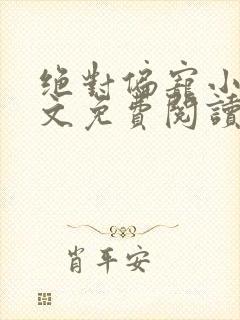 绝對偏寵小
文免費閱讀
肖平安